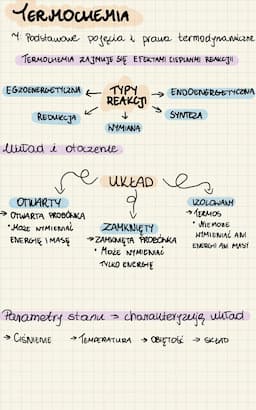 TERMOCHEMIA
1. Podstawowe pojęcia i prawa termodynamiczne
TERMOCHEMIA ZAJMUJE SIĘ EFEKTAMI CIEPLNYMI REAKCJI
EGZOENERGETYCZNA ← TYPY REAKCJI → ENDOENERGETYCZNA
REDUKCJA
SYNTEZA
WYMIANA
Układ i otoczenie
UKŁAD
OTWARTY
→ OTWARTA PROBÓWKA
• MOŻE WYMIENIAĆ
ENERGIĘ I MASĘ
ZAMKNIĘTY
→ ZAMKNIĘTA PROBÓWKA
• MOŻE WYMIENIAĆ
TYLKO ENERGIĘ
IZOLOWANY
→ TERMOS
• NIE MOŻE
WYMIENIAĆ ANI
ENERGII ANI MASY
Parametry stanu → charakteryzują układ
→ CIŚNIENIE → TEMPERATURA → OBJĘTOŚĆ → SKŁAD